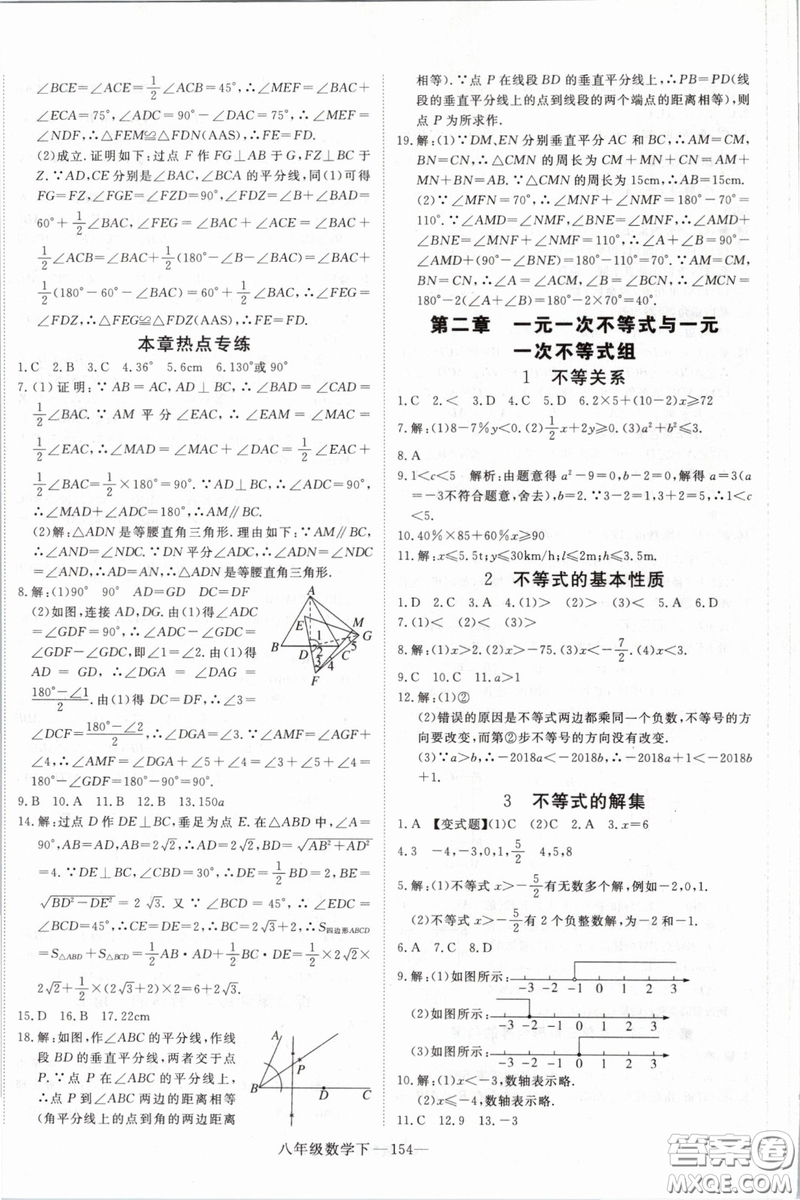 ∠BCE=∠ACE=1/2∠ACB=45°,∴∠MEF=∠BAC+
∠ECA=75°,∠ADC=90°-∠DAC=75°,∴∠MEF=
∠NDF,∴△FEM≌△FDN(AAS),∴FE=FD.
(2)成立.证明如下:过点 F 作 FG⊥AB 于 G,FZ⊥BC 于
Z.∵AD,CE 分别是∠BAC,∠BCA 的平分线,同(1)可得
FG=FZ,∠FGE=∠FZD=90°,∠FDZ=∠B+∠BAD=
60°+1/2∠BAC,∠FEG=∠BAC+∠FCA=∠BAC+
1/2∠ACB=∠BAC+1/2(180°-∠B-∠BAC)=∠BAC+
1/2(180°-60°-∠BAC)=60°+1/2∠BAC,∴∠FEG=
∠FDZ,∴△FEG≌△FDZ(AAS),∴FE=FD.
本章热点专练
1.C 2.B 3.C 4.36° 5.6cm 6.130°或90°
7.(1)证明:∵AB=AC,AD⊥BC,∴∠BAD=∠CAD=
1/2∠BAC.∵AM 平分∠EAC,∴∠EAM=∠MAC=
1/2∠EAC,∴∠MAD=∠MAC+∠DAC=1/2∠EAC+
1/2∠BAC=1/2×180°=90°.∵AD⊥BC,∴∠ADC=90°,
∴∠MAD+∠ADC=180°,∴AM∥BC.
(2)解:△ADN 是等腰直角三角形.理由如下:∵AM∥BC,
∴∠AND=∠NDC.∵DN 平分∠ADC,∴∠ADN=∠NDC
=∠AND,∴AD=AN,∴△ADN 是等腰直角三角形.
8.解:(1)90° 90° AD=GD DC=DF
(2)如图,连接 AD,DG.由(1)得∠ADC
=∠GDF=90°,∴∠ADC-∠GDC=
∠GDF-∠GDC,即∠1=∠2.由(1)得
AD=GD,∴∠DAG=∠DGA=
(180°-∠1)/2.由(1)得 DC=DF,∴∠3=
∠DCF=(180°-∠2)/2,∴∠DGA=∠3.∵∠AMF=∠AGF+
∠4,∴∠AMF=∠DGA+∠5+∠4=∠3+∠5+∠4=
180°-∠GDF=180°-90°=90°.
A
M
G
B
D
C
F
1
2
3
4
5
9.B 10.A 11.B 12.B 13.150a
14.解:过点 D 作 DE⊥BC,垂足为点 E.在△ABD 中,∠A=
90°,AB=AD,AB=2√2,∴AD=2√2,BD=√(AB²+AD²)
=4.∵∠DBC=30°,DE⊥BC,∴DE=1/2BD=2,∴BE=
√(BD²-DE²)=2√3.又∵∠BCD=45°,∴∠EDC=
∠BCD=45°,∴CE=DE=2,∴BC=2√3+2,∴S四边形ABCD
=S△ABD+S△BCD=1/2AB·AD+1/2BC·DE=1/2×2√2×
2√2+1/2×(2√3+2)×2=4+2√3+2=6+2√3.
15.D 16.B 17.22cm
18.解:如图,作∠ABC 的平分线,作线
段 BD 的垂直平分线,两者交于点
P.∵点 P 在∠ABC 的平分线上,
∴点 P 到∠ABC 的两边距离相等
(角平分线上的点到角的两边距离
A
P
B
D
C
相等).∵点 P 在线段 BD 的垂直平分线上,∴PB=PD(线
段的垂直平分线上的点到线段的两个端点的距离相等),则
点 P 为所求作.
19.解:(1)∵DM,EN 分别垂直平分 AC 和 BC,∴AM=CM,
BN=CN,∴△CMN 的周长为 CM+MN+CN=AM+MN+
BN=AB.∵△CMN 的周长为 15cm,∴AB=15cm.
(2)∵∠MFN=70°,∴∠MNF+∠NMF=180°-70°=
110°.∵∠AMD=∠NMF,∠BNE=∠MNF,∴∠AMD+
∠BNE=∠MNF+∠NMF=110°,∴∠A+∠B=90°-
∠AMD+(90°-∠BNE)=180°-110°=70°.∵AM=CM,
BN=CN,∴∠A=∠ACM,∠B=∠BCN,∴∠MCN=
180°-2(∠A+∠B)=180°-2×70°=40°.
第二章 一元一次不等式与一元
一次不等式组
1 不等关系
1.C 2.< 3.D 4.C 5.D 6.2×5+(10-2)x≥72
7.解:(1)8-7%y<0. (2)1/2x+2y≥0. (3)a²+b²≤3.
8.A
9.1<c<5 解析:由题意得 a²-9=0,b-2=0.解得 a=3(a
=-3不符合题意,舍去),b=2.∵3-2=1,3+2=5,∴1<c
<5.
10.40%×85+60%x≥90
11.解:x≤5.5t;y≤30km/h;l≤2m;h≤3.5m.
2 不等式的基本性质
1.D 2.C 3.A 4.(1)> (2)> (3)< 5.A 6.A
7.(1)< (2)< (3)> (4)>
8.解:(1)x>2. (2)x>5. (3)x<-7/2. (4)x<3.
9.C 10.C 11.a>1
12.解:(1)②
(2)错误的原因是不等式两边都乘同一个负数,不等号的方
向要改变,而第②步不等号的方向没有改变.
(3)∵a>b,∴-2018a<-2018b,∴-2018a+1<-2018b
+1.
3 不等式的解集
1.A 【变式题】(1)C (2)C 2.A 3.x=6
4.3 -4,-3,0,1,5/2 4,5,8
5.解:(1)不等式 x>-5/2有无数多个解,例如-2,0,1.
(2)不等式 x>-5/2有 2 个负整数解,为-2 和-1.
6.A 7.C 8.D
9.解:(1)如图所示: -3 -2 -1 0 1 2 3
(2)如图所示: -3 -2 -1 0 1 2 3
(3)如图所示: -3 -2 -1 0 1 2 3
10.解:(1)x<-3,数轴表示略.
(2)x≤-3,数轴表示略.
11.C 12.9 13.-3
八年级数学下—154—
答案圈
MXQE.COM